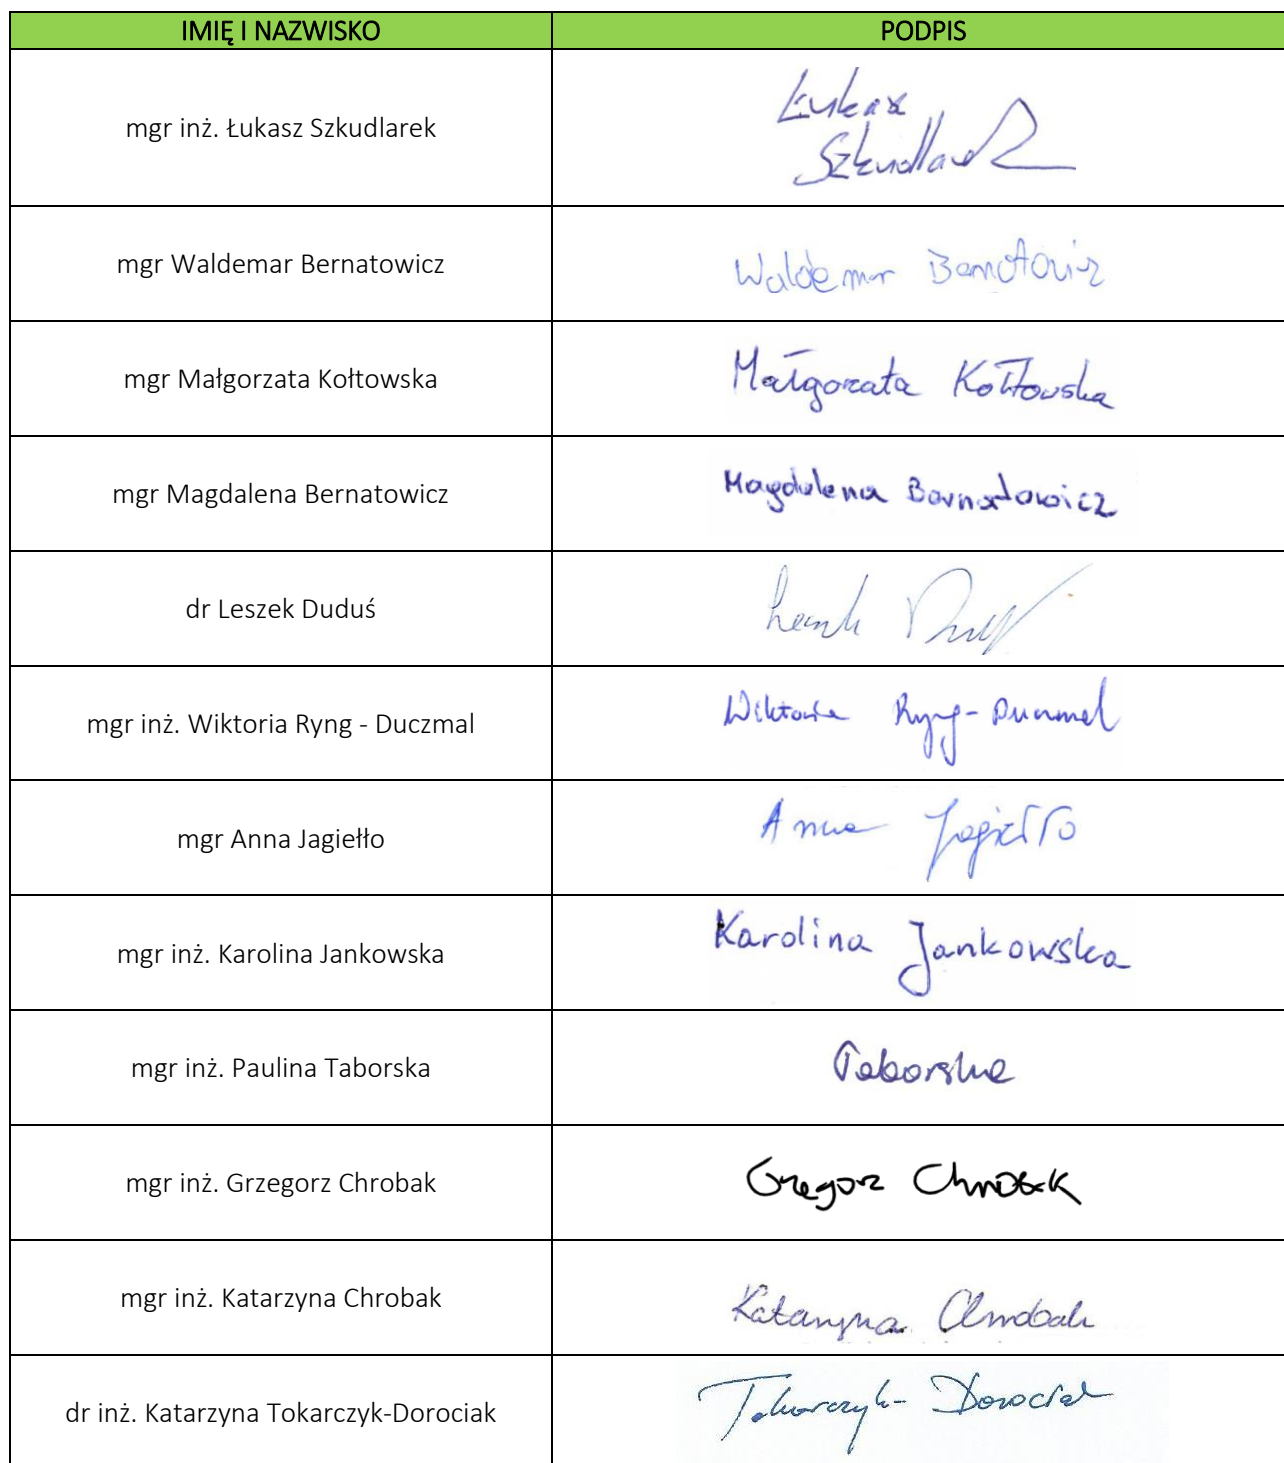 IMIĘ I NAZWISKO PODPIS
mgr inż. Łukasz Szkudlarek Łukasz
Szkudlarek
mgr Waldemar Bernatowicz Waldemar Bernatowicz
mgr Małgorzata Kołtowska Małgorzata Kołtowska
mgr Magdalena Bernatowicz Magdalena Bernatowicz
dr Leszek Duduś Leszek
mgr inż. Wiktoria Ryng - Duczmal Wiktoria Ryng-Duczmal
mgr Anna Jagiełło Anna Jagiełło
mgr inż. Karolina Jankowska Karolina Jankowska
mgr inż. Paulina Taborska Taborska
mgr inż. Grzegorz Chrobak Grzegorz Chrobak
mgr inż. Katarzyna Chrobak Katarzyna Chrobak
dr inż. Katarzyna Tokarczyk-Dorociak Tokarczyk-Dorociak